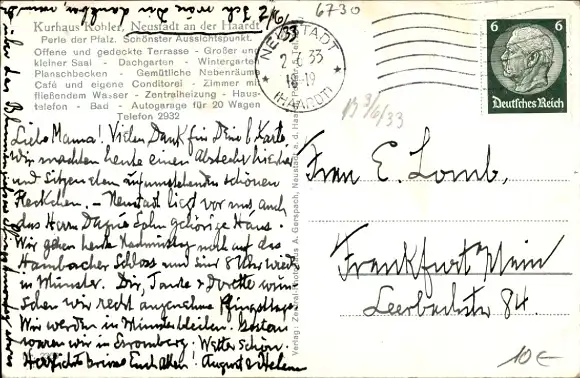 Kurhaus Kohler, Neustadt an der Haardt
Perle der Pfalz. Schönster Aussichtspunkt.
Offene und gedeckte Terrasse - Großer und
kleiner Saal - Dachgarten - Wintergarten
Planschbecken - Gemütliche Nebenräume
Café und eigene Conditorei - Zimmer mit
fließendem Wasser - Zentralheizung - Haus-
telefon - Bad - Autogarage für 20 Wagen
Telefon 2932
2/6/33
Liebe Mama! Vielen Dank für Deine l. Karte.
Wir machten heute einen Abstecher hierher
und sitzen eben auf umstehenden schönen
Fleckchen. - Neustadt liegt vor uns, auch
das Herrn
gehörige Haus.
Wir gehen heute Nachmittag noch auf das
Hambacher Schloss und sind 8 Uhr wieder
in Münster. Dir, Tante & Dorette wün-
schen wir recht angenehme Pfingsttage.
Wir werden in Münster bleiben. Gestern
waren wir in Stromberg. Wetter schön.
Herzlichst Euch allen! August & Helene
Verlag: A. Gerspach, Neustadt a. d. Haardt
6730
NEUSTADT
2.6.33
18-19
(HAARDT)
6 6
Deutsches Reich
3/6/33
Frau E. Lomb,
Frankfurt Main
Leerbachstr 84.
10€